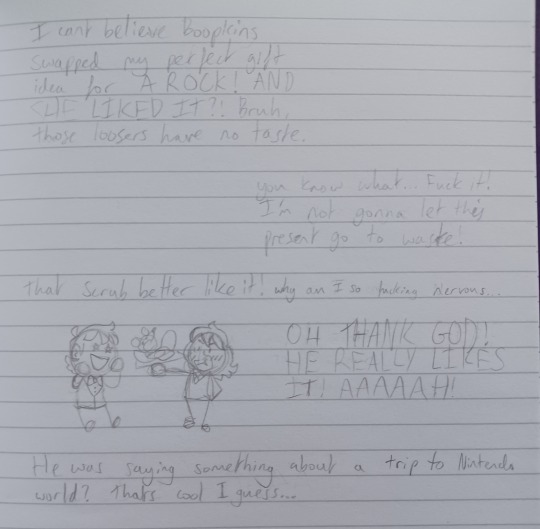 I cant believe Boopkins
swapped my perfect gift
idea for A ROCK! AND
SHE LIKED IT?! Bruh,
those loosers have no taste.
you know what... Fuck it!
I'm not gonna let this
present go to waste!
That Scrub better like it! why am I so fucking nervous...
OH THANK GOD!
HE REALLY LIKES
IT! AAAAAH!
He was saying something about a trip to Nintendo
world? Thats cool I guess...